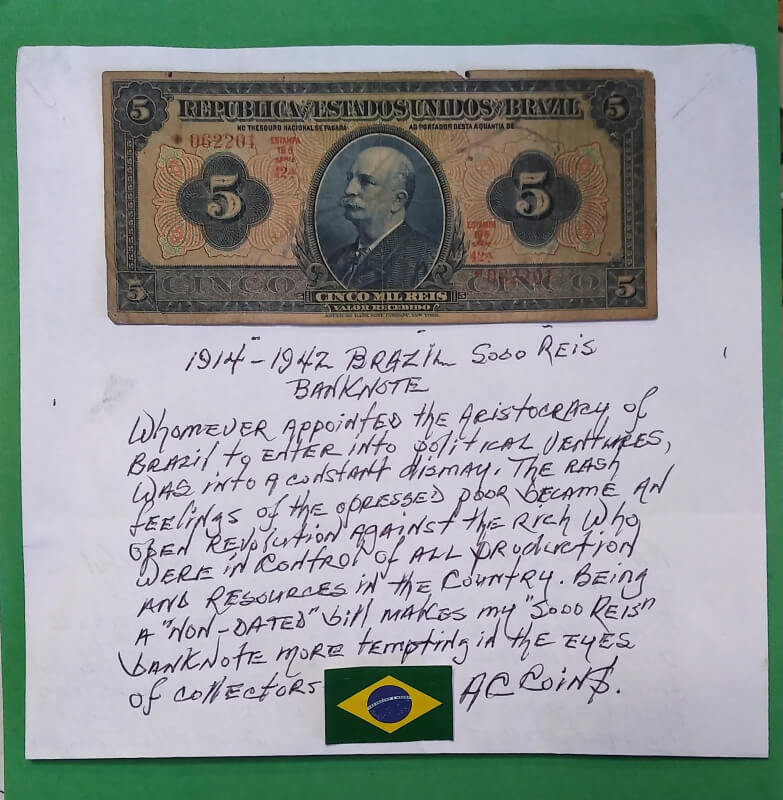 5 REPUBLICA DOS ESTADOS UNIDOS DO BRAZIL 5
NO THESOURO NACIONAL SE PAGARÁ AO PORTADOR DESTA A QUANTIA DE
* 062201 ESTAMPA
SERIE
42ª
5 5
ESTAMPA
42ª
* 062201
5 CINCO CINCO 5
5 CINCO MIL REIS 5
VALOR RECEBIDO
AMERICAN BANK NOTE COMPANY, NEW YORK.
1914-1942 BRAZIL 5000 REIS
BANKNOTE
WHOMEVER APPOINTED THE ARISTOCRACY OF
BRAZIL TO ENTER INTO POLITICAL VENTURES,
WAS INTO A CONSTANT DISMAY. THE RASH
FEELINGS OF THE OPRESSED POOR BECAME AN
OPEN REVOLUTION AGAINST THE RICH WHO
WERE IN CONTROL OF ALL PRODUCTION
AND RESOURCES IN THE COUNTRY. BEING
A "NON-DATED" BILL MAKES MY "5000 REIS"
BANKNOTE MORE TEMPTING IN THE EYES
OF COLLECTORS
AC COIN$.